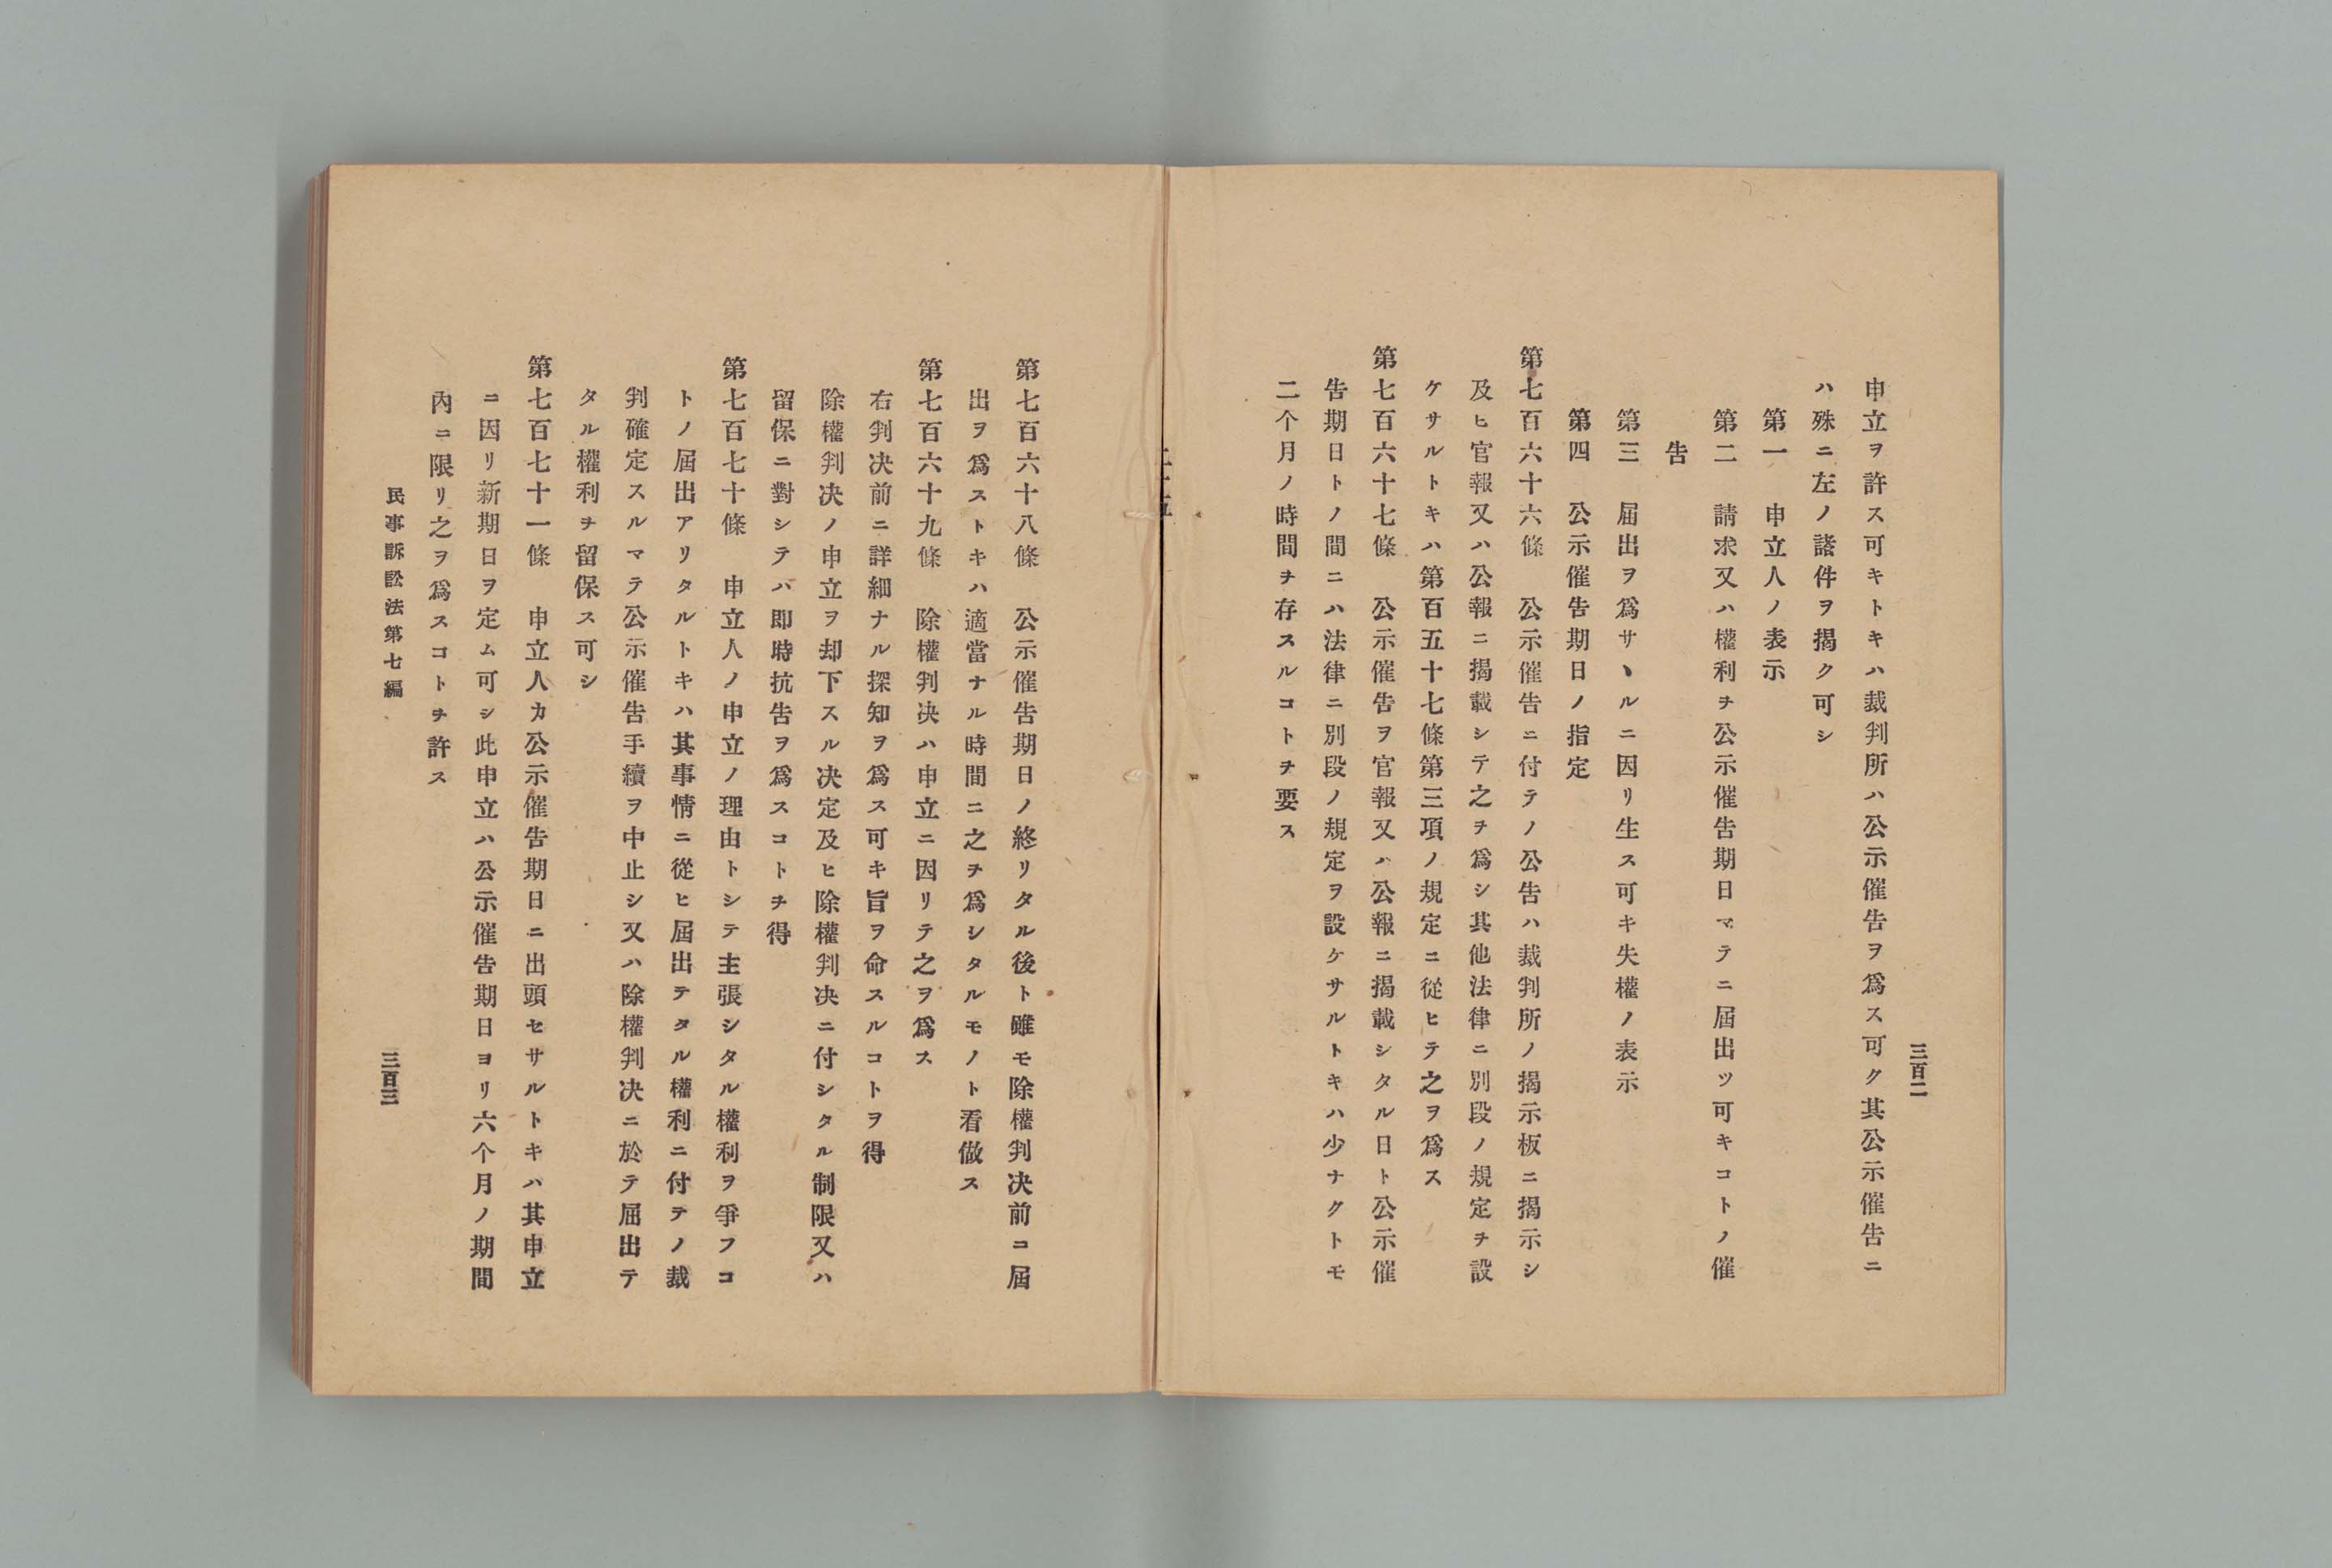 三百二
申立ヲ許ス可キトキハ裁判所ハ公示催告ヲ爲ス可ク其公示催告ニ
ハ殊ニ左ノ諸件ヲ揭ク可シ
第一　申立人ノ表示
第二　請求又ハ權利ヲ公示催告期日マテニ屆出ツ可キコトノ催
告
第三　屆出ヲ爲サヽルニ因リ生ス可キ失權ノ表示
第四　公示催告期日ノ指定
第七百六十六條　公示催告ニ付テノ公告ハ裁判所ノ揭示板ニ揭示シ
及ヒ官報又ハ公報ニ揭載シテ之ヲ爲シ其他法律ニ別段ノ規定ヲ設
ケサルトキハ第百五十七條第三項ノ規定ニ從ヒテ之ヲ爲ス
第七百六十七條　公示催告ヲ官報又ハ公報ニ揭載シタル日ト公示催
告期日トノ間ニハ法律ニ別段ノ規定ヲ設ケサルトキハ少ナクトモ
二个月ノ時間ヲ存スルコトヲ要ス
第七百六十八條　公示催告期日ノ終リタル後ト雖モ除權判决前ニ屆
出ヲ爲ストキハ適當ナル時間ニ之ヲ爲シタルモノト看做ス
第七百六十九條　除權判决ハ申立ニ因リテ之ヲ爲ス
右判决前ニ詳細ナル探知ヲ爲ス可キ旨ヲ命スルコトヲ得
除權判决ノ申立ヲ却下スル决定及ヒ除權判决ニ付シタル制限又ハ
留保ニ對シテバ即時抗告ヲ爲スコトヲ得
第七百七十條　申立人ノ申立ノ理由トシテ主張シタル權利ヲ爭フコ
トノ屆出アリタルトキハ其事情ニ從ヒ屆出テタル權利ニ付テノ裁
判確定スルマテ公示催告手續ヲ中止シ又ハ除權判决ニ於テ屆出テ
タル權利ヲ留保ス可シ
第七百七十一條　申立人カ公示催告期日ニ出頭セサルトキハ其申立
ニ因リ新期日ヲ定ム可シ此申立ハ公示催告期日ヨリ六个月ノ期間
內ニ限リ之ヲ爲スコトヲ許ス
民事訴訟法第七編
三百三